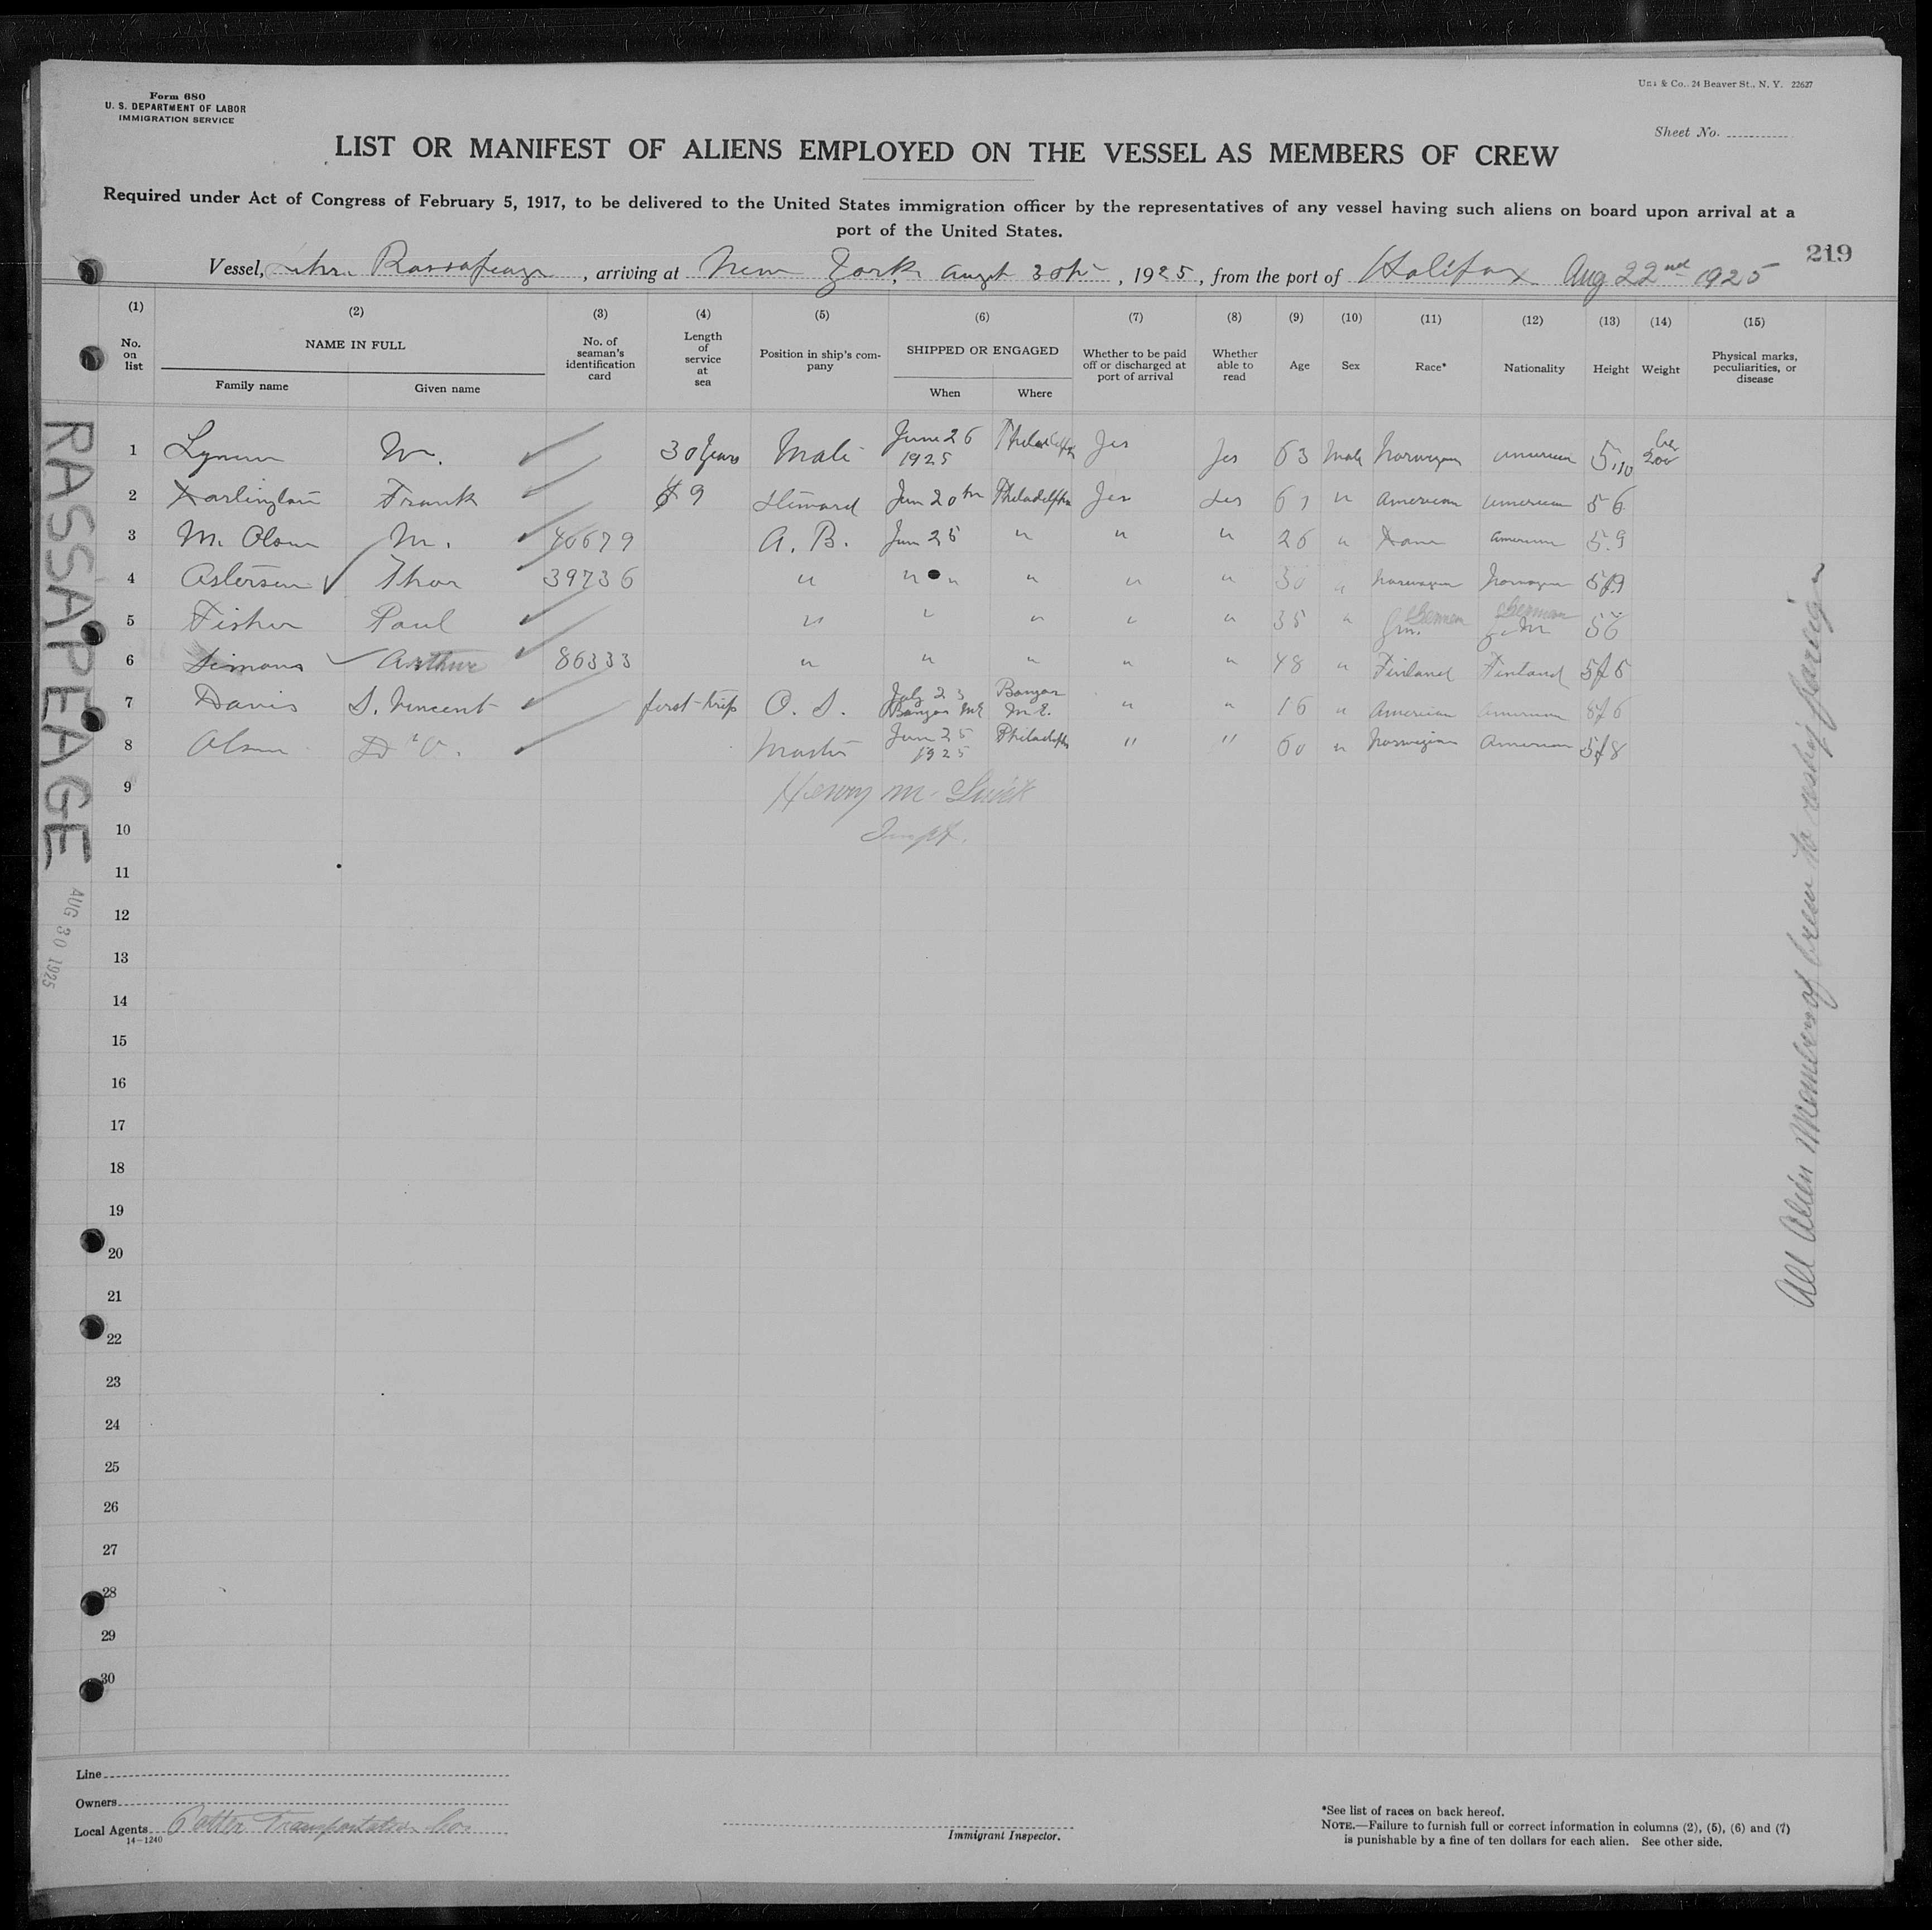 Form 680
U. S. DEPARTMENT OF LABOR
IMMIGRATION SERVICE
& Co., 24 Beaver St., N. Y. 22627
Sheet No.
LIST OR MANIFEST OF ALIENS EMPLOYED ON THE VESSEL AS MEMBERS OF CREW
Required under Act of Congress of February 5, 1917, to be delivered to the United States immigration officer by the representatives of any vessel having such aliens on board upon arrival at a
port of the United States.
219
Vessel, Rassapeage, arriving at New York, 1925, from the port of Halifax Aug 22nd 1925
(1) (2) (3) (4) (5) (6) (7) (8) (9) (10) (11) (12) (13) (14) (15)
No. on list
NAME IN FULL
Family name Given name
No. of seaman's identification card
Length of service at sea
Position in ship's company
SHIPPED OR ENGAGED
When Where
Whether to be paid off or discharged at port of arrival
Whether able to read
Age Sex Race* Nationality Height Weight
Physical marks, peculiarities, or disease
1 30 Years Mate June 26 1925 Philadelphia Yes Yes 63 Male Norwegian American 5,10 200
2 Frank 9 Steward Jun 20th Philadelphia Yes Yes 61 " American American 5 6
3 M. Olsen M. 40679 A. B. Jun 25 " " " 26 " Dane American 5.9
4 Thor 39736 " " " " " " 30 " Norwegian Norwegian 5/9
5 Fisher Paul " " " " " 35 " German German 5 6
6 Simons Arthur 86333 " " " " " 48 " Finland Finland 5/6
7 Davis S. Vincent first trip O. S. July 23 Bangor ME Bangor M.E. " " 16 " American American 5/6
8 Olsen Master Jun 25 1925 Philadelphia " " 60 " Norwegian American 5/8
9 Henry M.
10 Inspt.
11
12
13
14
15
16
17
18
19
20
21
22
23
24
25
26
27
28
29
30
RASSAPEAGE
AUG 30 1925
All Alien Members of Crew to reship foreign
Line
Owners
Local Agents Potter Transportation Co.
14-1240
Immigrant Inspector.
*See list of races on back hereof.
NOTE.—Failure to furnish full or correct information in columns (2), (5), (6) and (7)
is punishable by a fine of ten dollars for each alien. See other side.